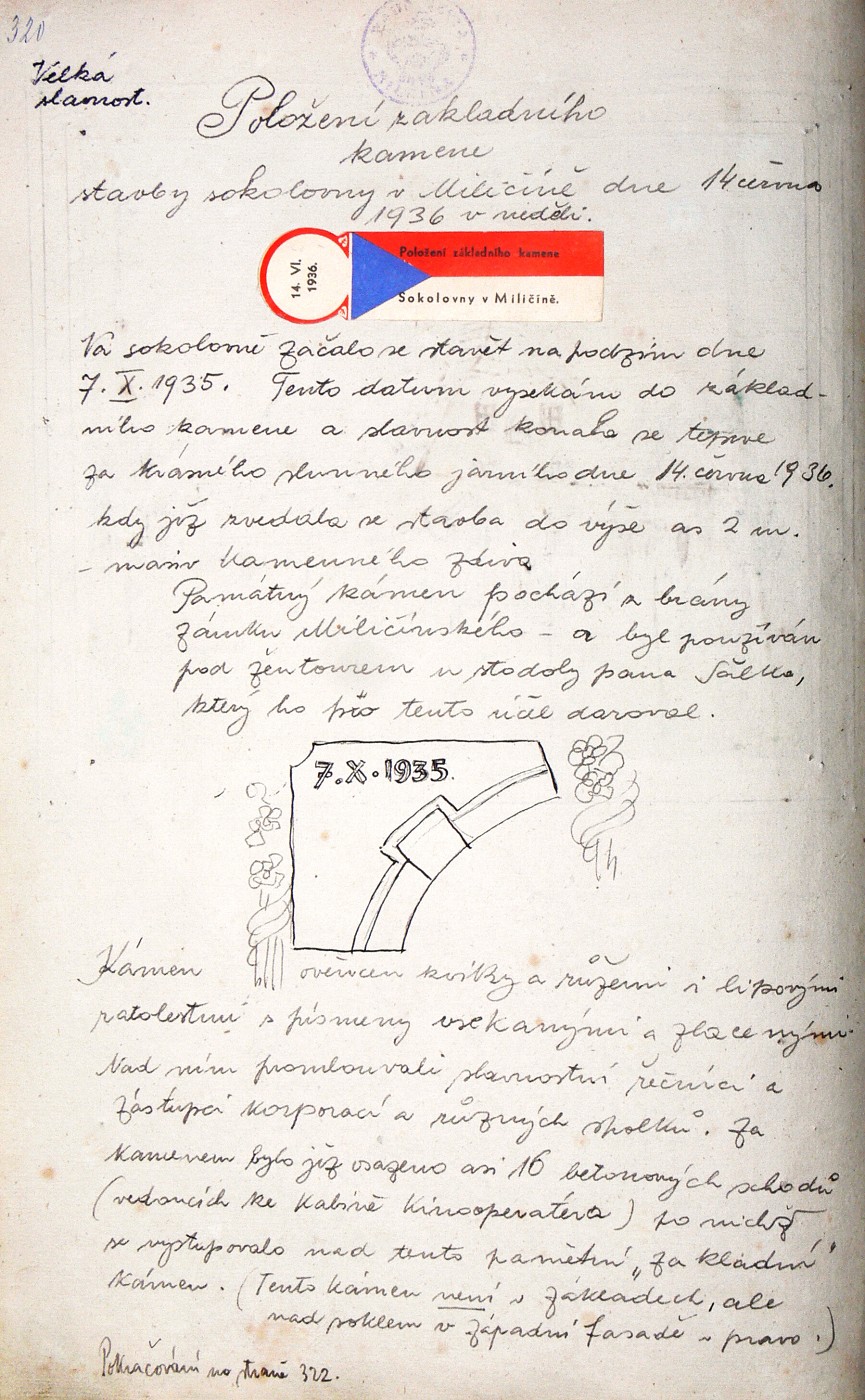 320
Velká
slavnost.
Položení zakladního
kamene
stavby sokolovny v Miličíně dne 14 června
1936 v neděli.
14. VI.
1936.
Položení základního kamene
Sokolovny v Miličíně.
Na sokolovně začalo se stavět na podzim dne
7. X. 1935. Tento datum vysekám do základ-
ního kamene a slavnost konala se teprve
za krásného slunného jarního dne 14. června 1936,
kdy již zvedala se stavba do výše as 2 m.
- masiv kamenného zdiva
Památný kámen pochází z brány
zámku Miličínského - a byl používán
pod žentourem u stodoly pana Sálka,
který ho pro tento účel daroval.
7. X. 1935.
Kámen ověnčen kvítky a růžemi i lipovými
ratolestmi s písmeny vsekanými a zlacenými.
Nad ním promlouvali slavnostní řečníci a
zástupci korporací a různých spolků. Za
kamenem bylo již osazeno asi 16 betonových schodů
(vedoucích ke kabině kinooperatéra) po nichž
se vystupovalo nad tento pamětní „zakladní"
kámen. (Tento kámen není v základech, ale
nad soklem v západní fasadě v pravo.)
Pokračování na straně 322.